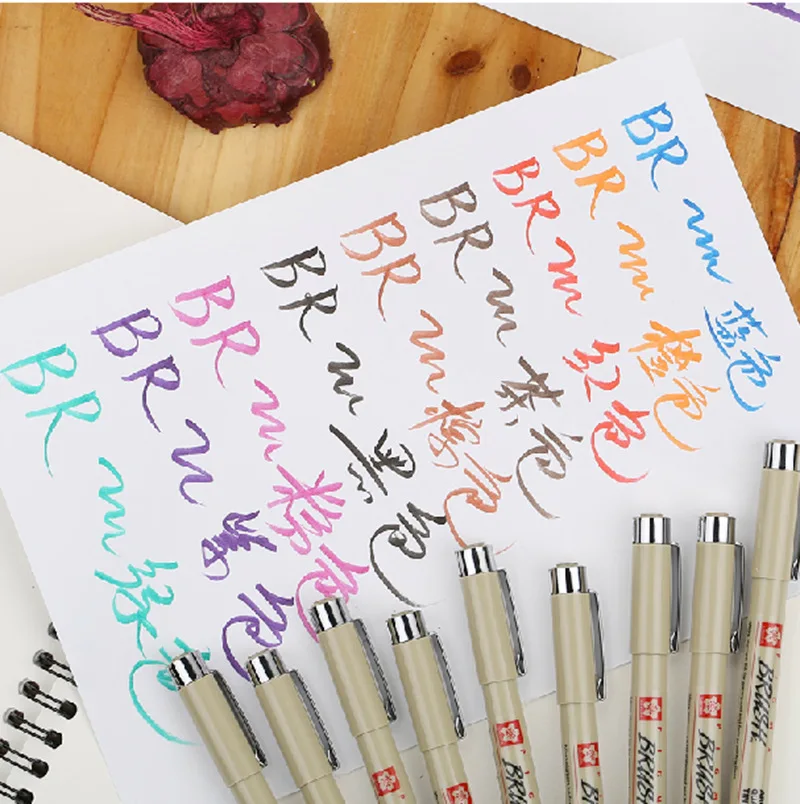 BR
绿色
BR
紫色
BR
粉色
BR
黑色
BR
色
BR
茶色
BR
红色
BR
橙色
BR
蓝色
BRUSH
BRUSH
BRUSH
BRUSH
BRUSH